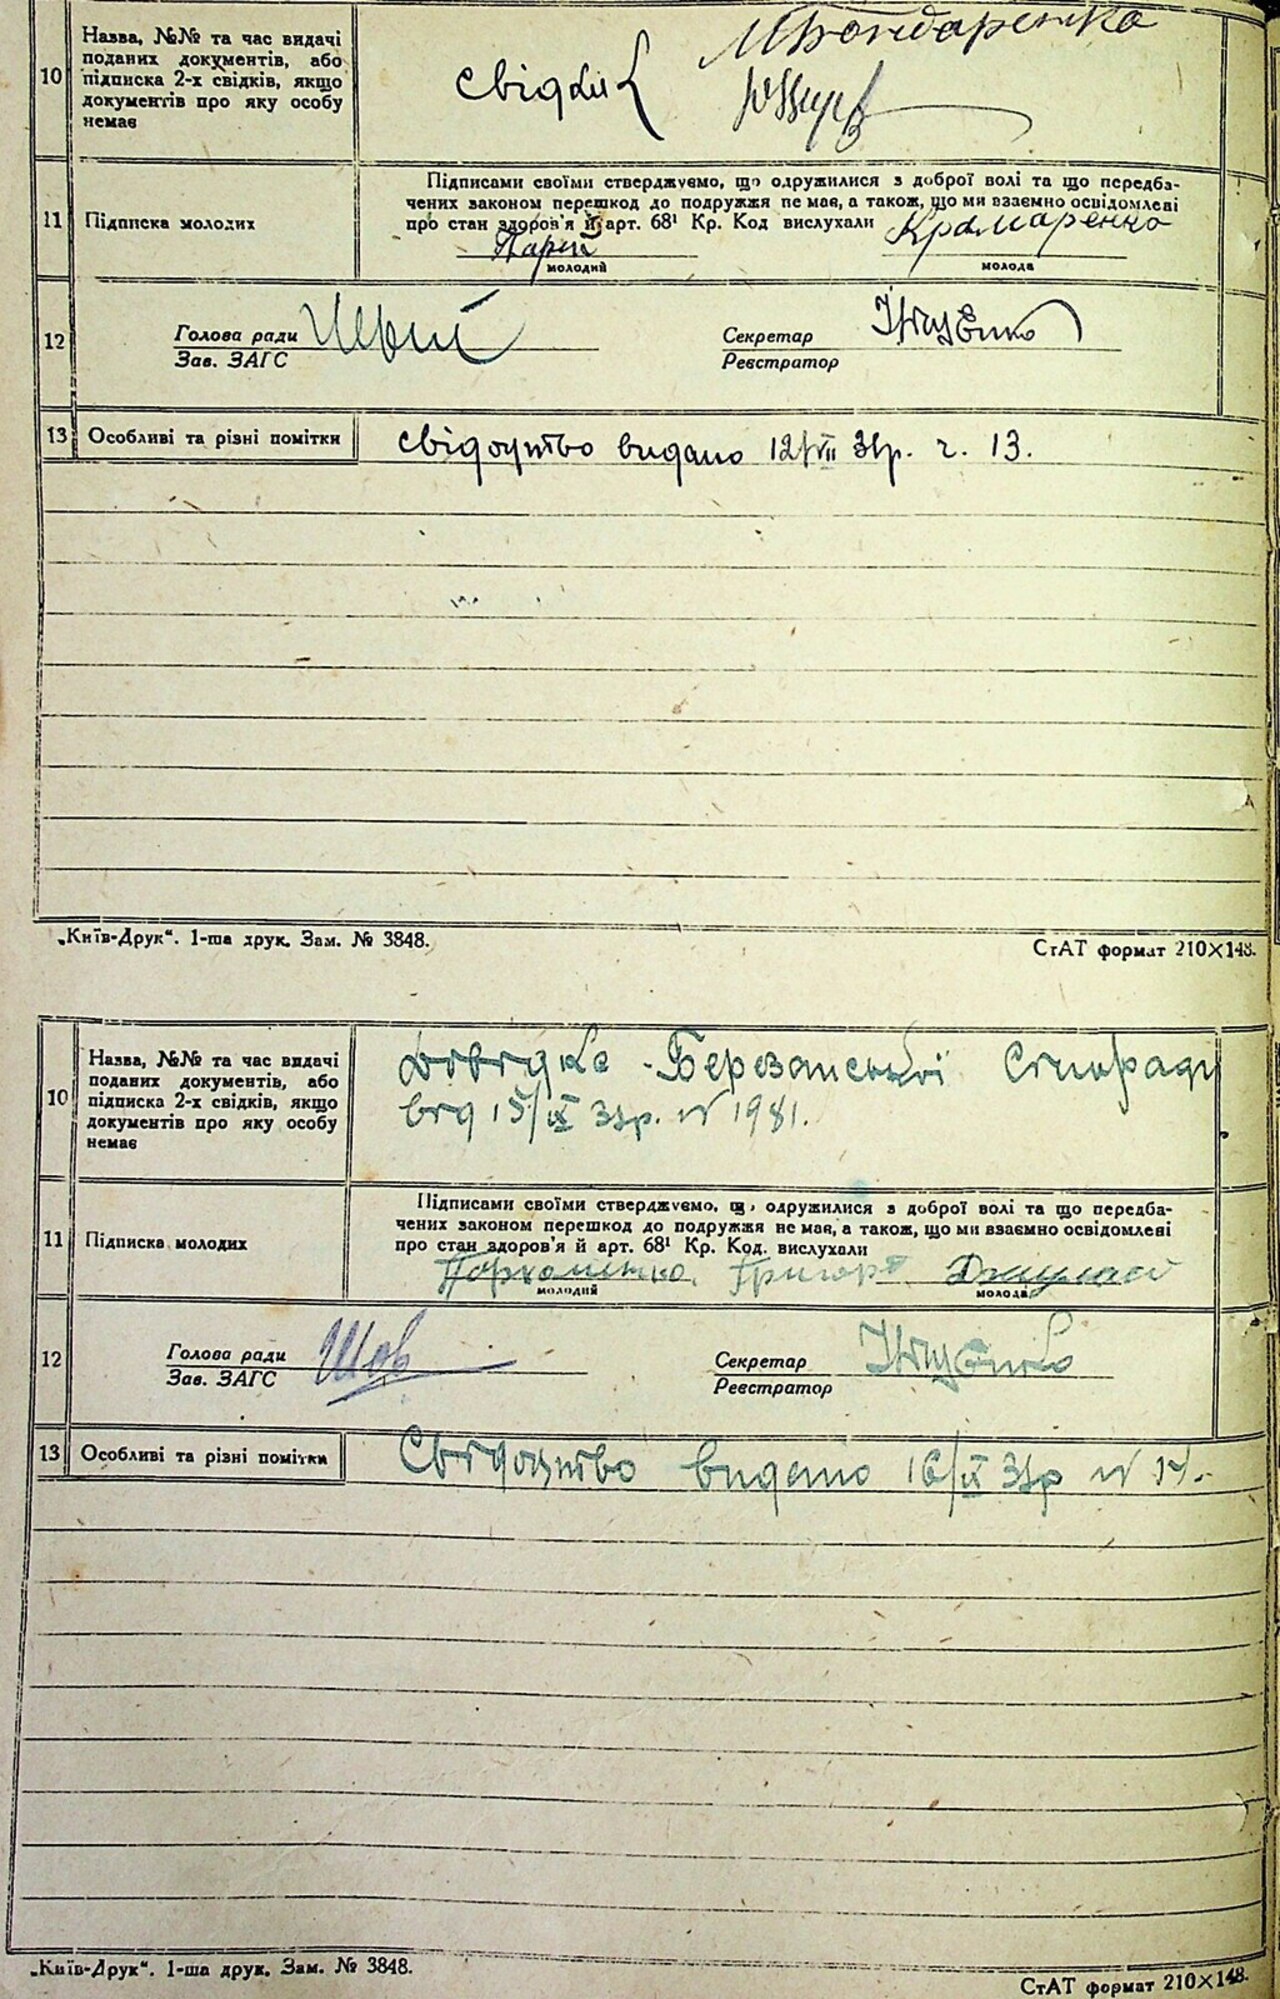 10
Назва, №№ та час видачі
поданих документів, або
підписка 2-х свідків, якщо
документів про яку особу
немає
Бондаренко
Свідки
11
Підписка молодих
Підписами своїми стверджуємо, що одружилися з доброї волі та що передба-
чених законом перешкод до подружжя не має, а також, що ми взаємно освідомлені
про стан здоров'я й арт. 68¹ Кр. Код вислухали
Крамаренко
молодий
молода
12
Голова ради
Зав. ЗАГС
Секретар
Реєстратор
13
Особливі та різні помітки
Свідоцтво видано 12/VII 31р. ч. 13.
„Київ-Друк“. 1-ша друк. Зам. № 3848.
СтАТ формат 210×148.
10
Назва, №№ та час видачі
поданих документів, або
підписка 2-х свідків, якщо
документів про яку особу
немає
Довідка Березанської Сільради
від 15/IX 31р. № 1981.
11
Підписка молодих
Підписами своїми стверджуємо, що одружилися з доброї волі та що передба-
чених законом перешкод до подружжя не має, а також, що ми взаємно освідомлені
про стан здоров'я й арт. 68¹ Кр. Код. вислухали
Пархоменко Григорі
молодий
молода
12
Голова ради
Зав. ЗАГС
Секретар
Реєстратор
13
Особливі та різні помітки
Свідоцтво видано 16/IX 31р №
„Київ-Друк“. 1-ша друк. Зам. № 3848.
СтАТ формат 210×148.